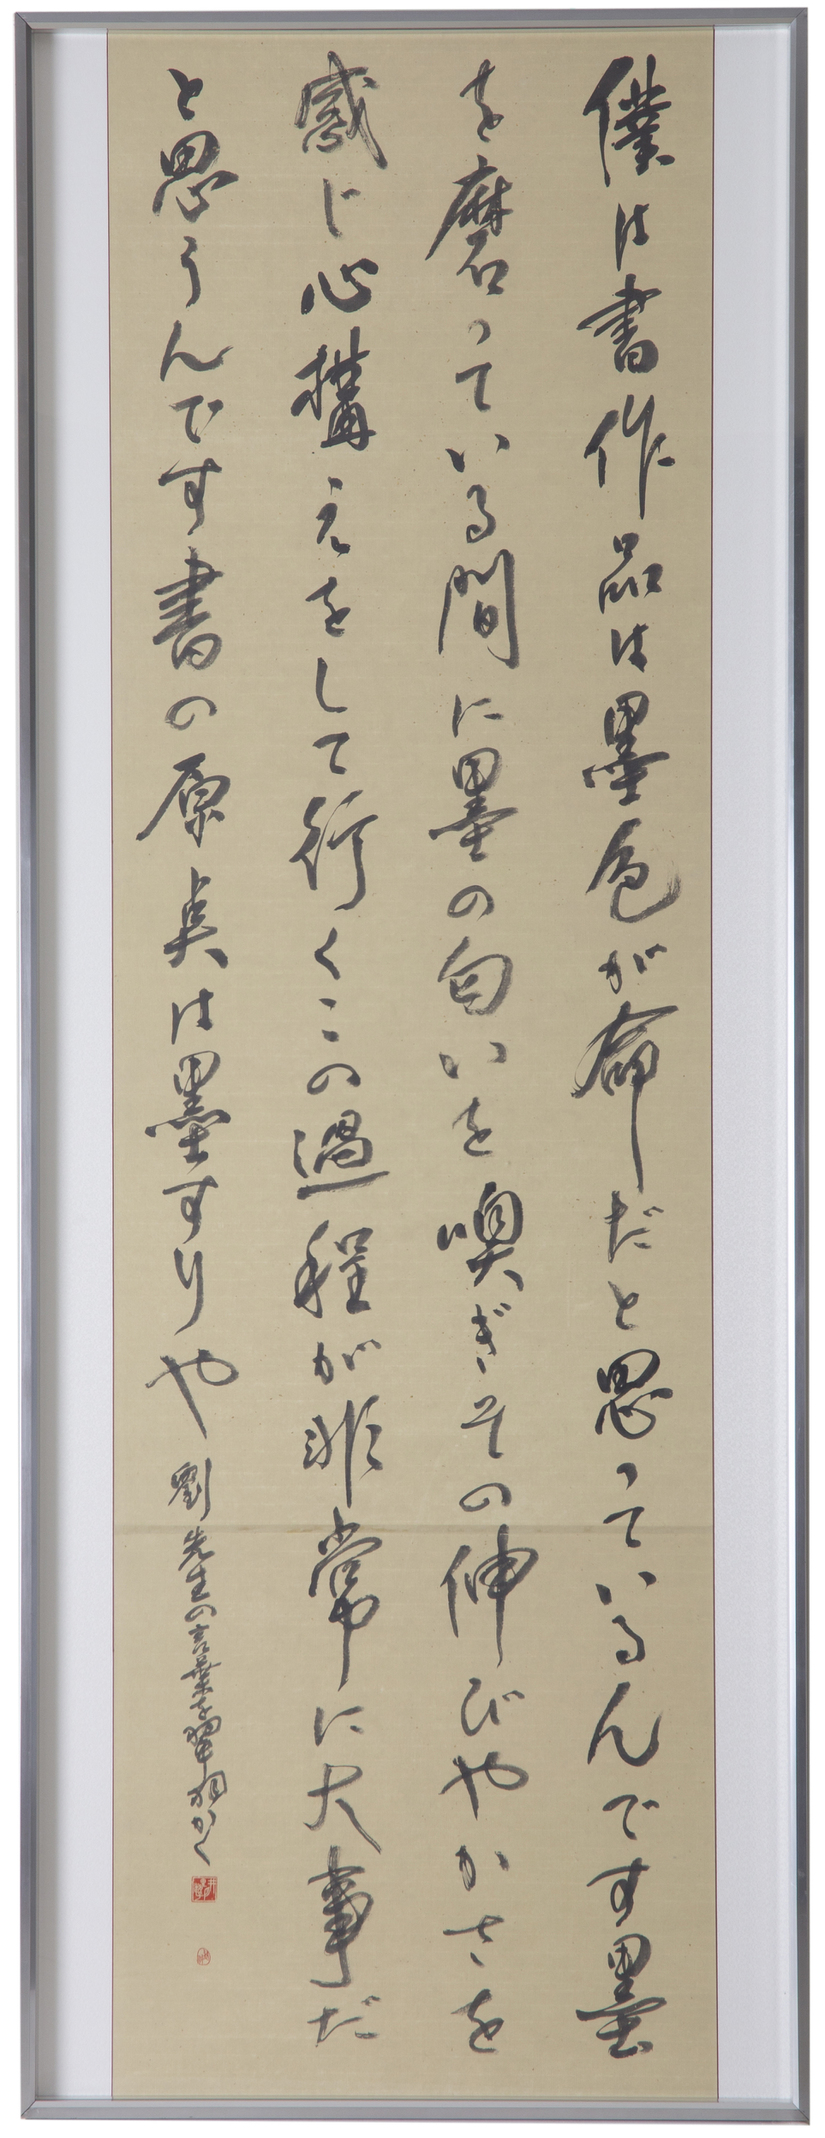 僕は書作品は墨色が命だと思っているんです墨
を磨っている間に墨の匂いを嗅ぎその伸びやかさを
感じ心構えをして行くこの過程が非常に大事だ
と思うんです書の原点は墨すりや
劉先生の言葉を翠翔かく